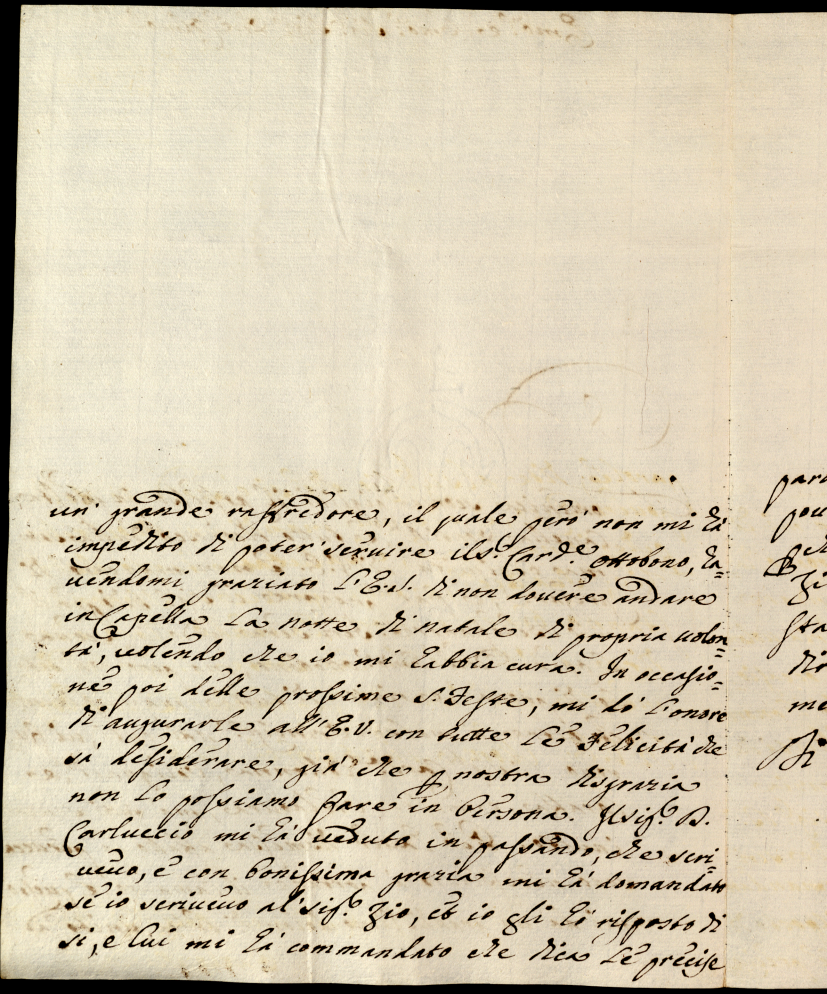 un' grande raffredore, il quale però non mi hà
impedito di poter' seruire il s.r Card.e ottobono, ha=
uendomi graziato l'E.S. di non douere andare
in Capella la notte di natale di propria uolon=
tà, uolendo che io mi habbia cura. In occasio=
ne poi delle prossime S. Feste, mi dò l'onore
di augurarle all'E.V. con tutte le Felicità che
sà desiderare, già che p nostra disgrazia
non lo possiamo fare in Persona. Il sig.e D.
Carluccio mi hà ueduto in passando, che scri=
ueuo, e con bonissima grazia mi hà domandato
se io scriueuo al' sig.e Zio, et io gli hò risposto di
si, e lui mi hà commandato che dica le precise
paro
pou
Zi
sta
dio
me